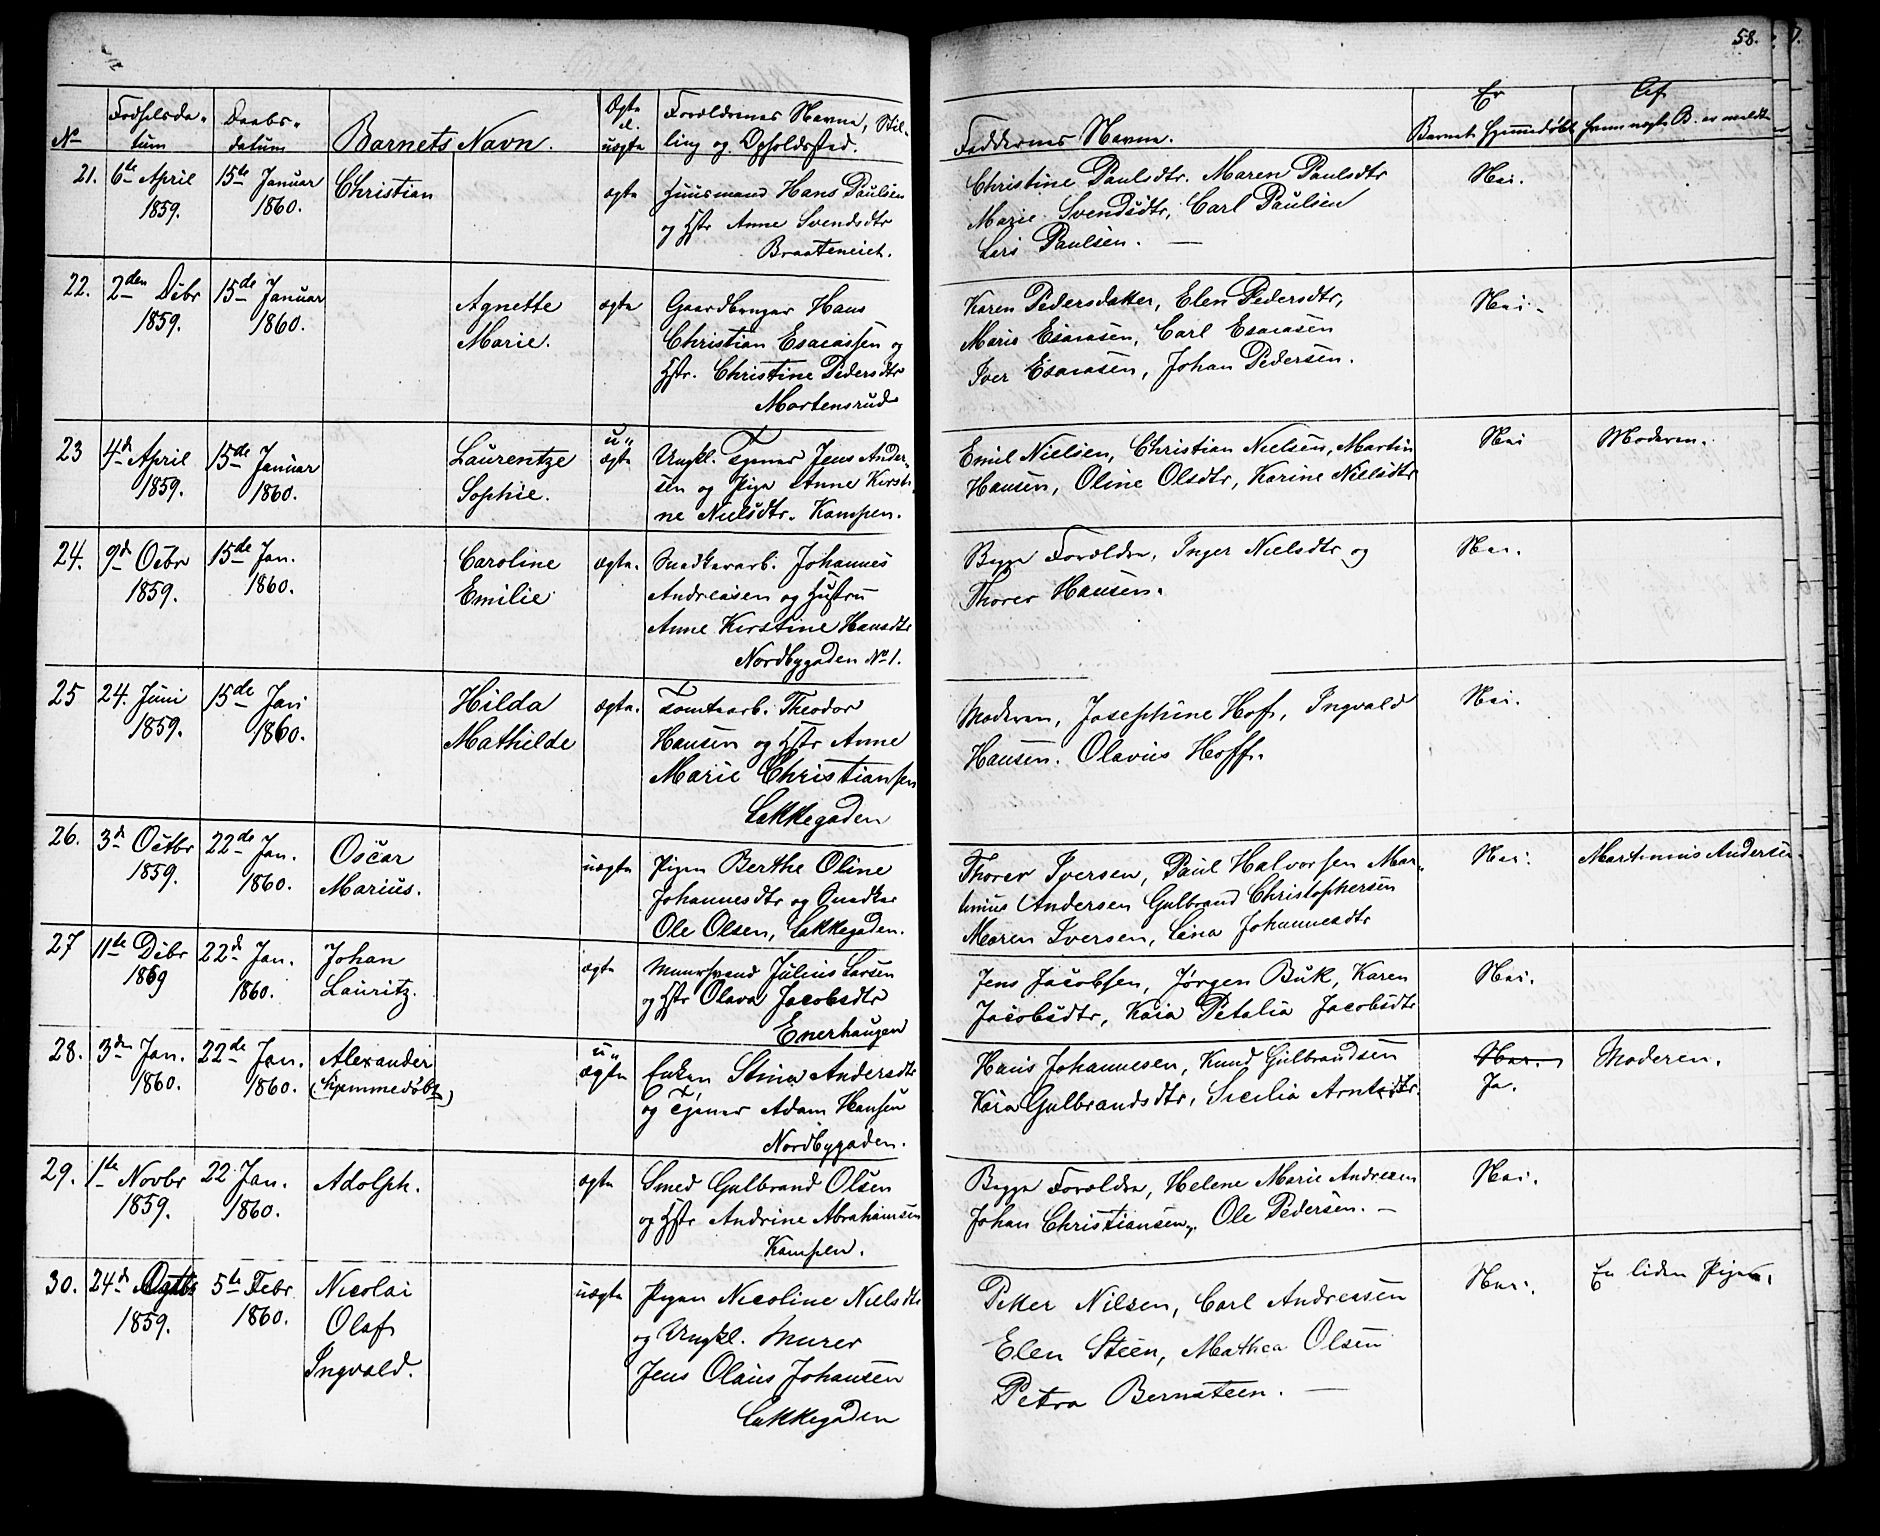 58.
No
Fødselsda-
tum
Daabs-
datum
Barnets Navn.
Ægte
el.
uægte
Forældrenes Navne, Stil-
ling og Opholdssted.
Faddernes Navne.
Er
Barnet hjemmedøbt
Af
hvem uægte B. er meldt
21. 6te April 15de Januar Christian ægte Huusmand Hans Paulsen
1859. 1860. og Hstr Anne Svendsdtr
Braateneiet.
Christine Paulsdtr. Maren Paulsdtr Nei.
Marie Svendsdtr, Carl Paulsen
Lars Paulsen. —
22. 2den Débr 15de Januar Agnette ægte Gaardbruger Hans
1859. 1860. Marie. Christian Esaiassen og
Hstr. Christine Pedersdtr
Mortensrud
Karen Pedersdatter, Elen Pedersdtr, Nei.
Marie Esaiasen, Carl Esaiasen
Iver Esaiasen, Johan Pedersen.
23 4d April 15de Januar Laurentze u- Ungkl. Tjener Jens Ander-
1859. 1860. Sophie. ægte sen og Pige Anne Kirsti-
ne Nielsdtr. Kampen.
Emil Nielsen, Christian Nielsen, Martin Nei Moderen.
Hansen, Oline Olsdtr, Karine Nielsdtr
24. 9d Octbr 15de Jan. Caroline ægte. Snedkerarb. Johannes
1859. 1860. Emilie Andreasen og Hustru
Anne Kirstine Hansdtr
Nordbygaden No 1.
Begge Forældre, Inger Nielsdtr og Nei.
Thorer Hansen.
25 24. Juni 15de Jan Hilda ægte. Tomtearb. Theodor
1859. 1860. Mathilde Hansen og Hstr Anne
Marie Christiansen
Lakkegaden
Moderen, Josephine Hof, Ingvald Nei.
Hansen. Olavus Hoff.
26. 3d Octbr 22de Jan. Oscar uægte Pigen Berthe Oline
1859. 1860. Marius. Johannesdtr og Snedker
Ole Olsen, Lakkegaden.
Thorer Iversen, Paul Halvorsen Mar- Nei. Martinius Andersen.
tinius Andersen Gulbrand Christophersen
Maren Iversen, Lina Johannesdtr
27 11te Débr 22d Jan. Johan ægte Muursvend Julius Larsen
1859 1860. Lauritz. og Hstr Olava Jacobsdtr
Enerhaugen
Jens Jacobsen, Jørgen Buk, Karen Nei.
Jacobsdtr, Kaia Petalia Jacobsdtr
28. 3de Jan. 22de Jan. Alexander u- Enken Stina Andersdtr
1860. 1860. (hjemmedøbt) ægte og Tjener Adam Hansen
Nordbygaden.
Hans Johannesen, Knud Gulbrandsen Nei Moderen.
Kaia Gulbrandsdtr, Sicilia Arntsdtr. Ja.
29. 1te Novbr 22 Jan. Adolph. ægte Smed Gulbrand Olsen
1859. 1860. og Hstr Andrine Abrahamsen
Kampen.
Begge Forældre, Helene Marie Andresen Nei.
Johan Christiansen, Ole Pedersen. —
30. 24d 5te Febr Nicolai uægte Pigen Nicoline Nielsdtr
1859. 1860. Olaf og Ungkl. Murer
Ingvald. Jens Olaus Johansen
Lakkegaden
Peter Nilsen, Carl Andreasen Nei. En liden Pige.
Elen Steen, Mathea Olsen
Petra Bernsteen. —